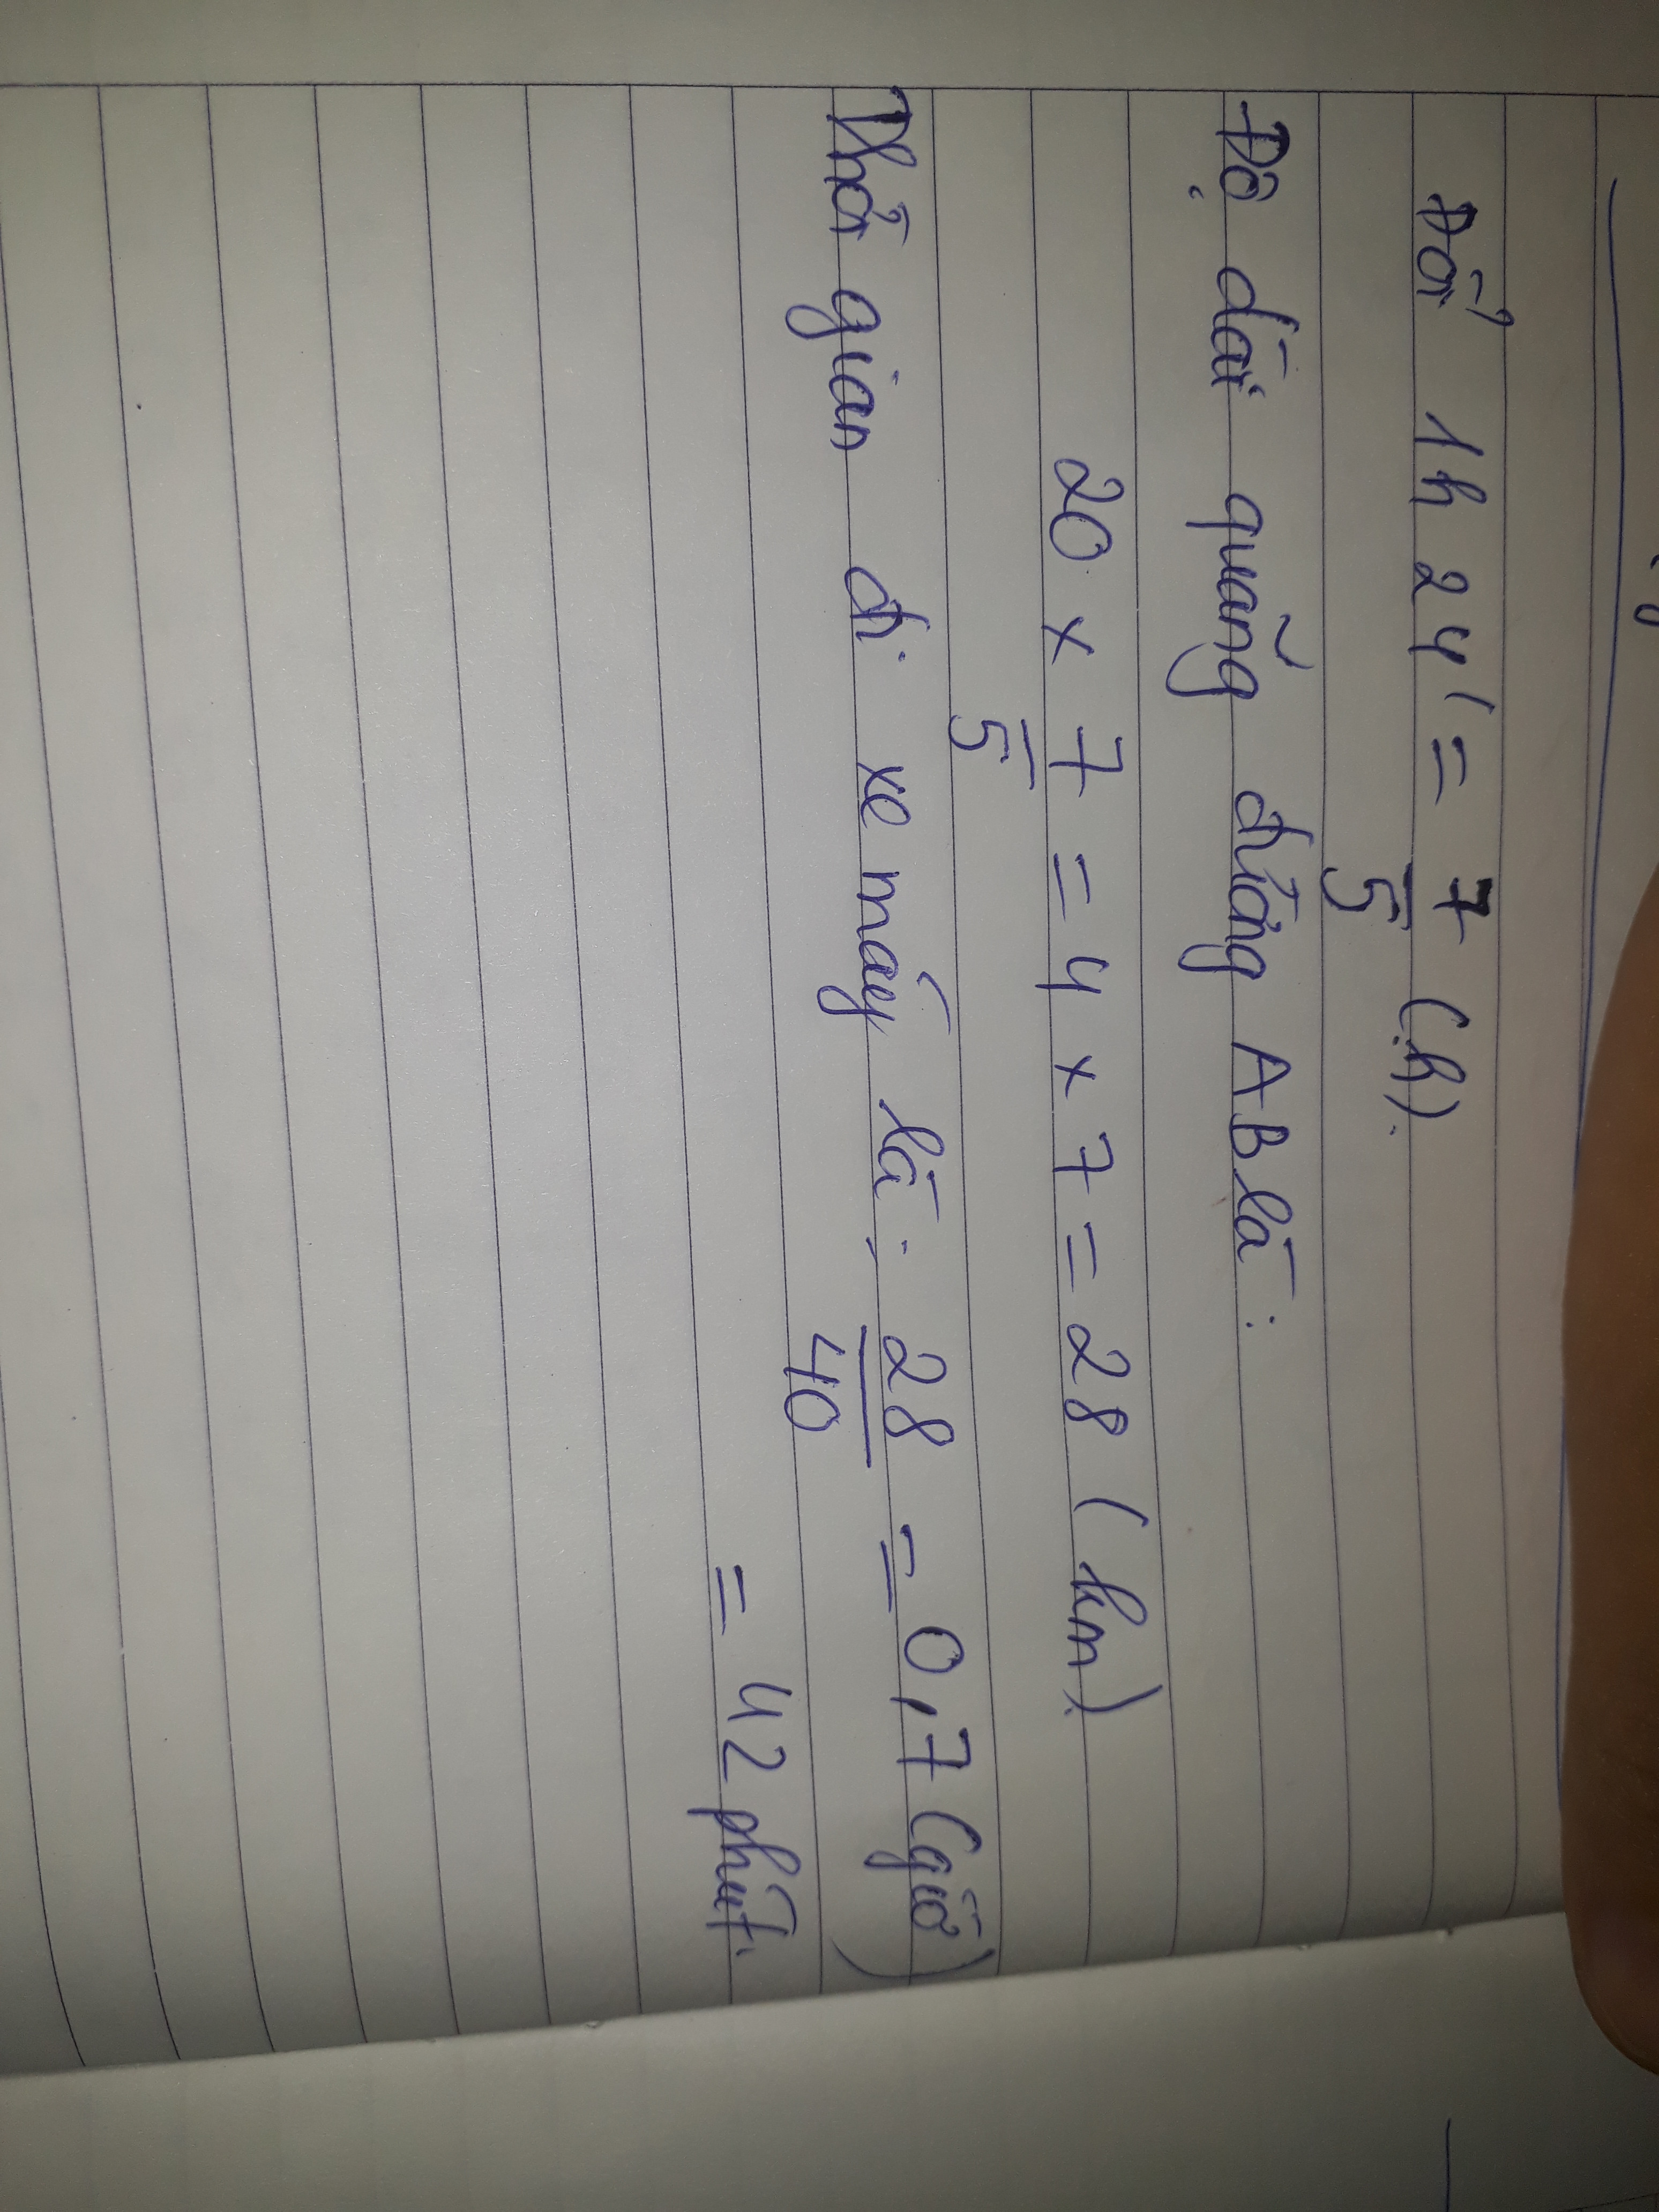 Đổi 1h 24' = 7/5 (h).
Độ dài quãng đường AB là:
20 x 7/5 = 4 x 7 = 28 (km).
Thời gian đi xe máy là: 28/40 = 0,7 (giờ)
= 42 phút.